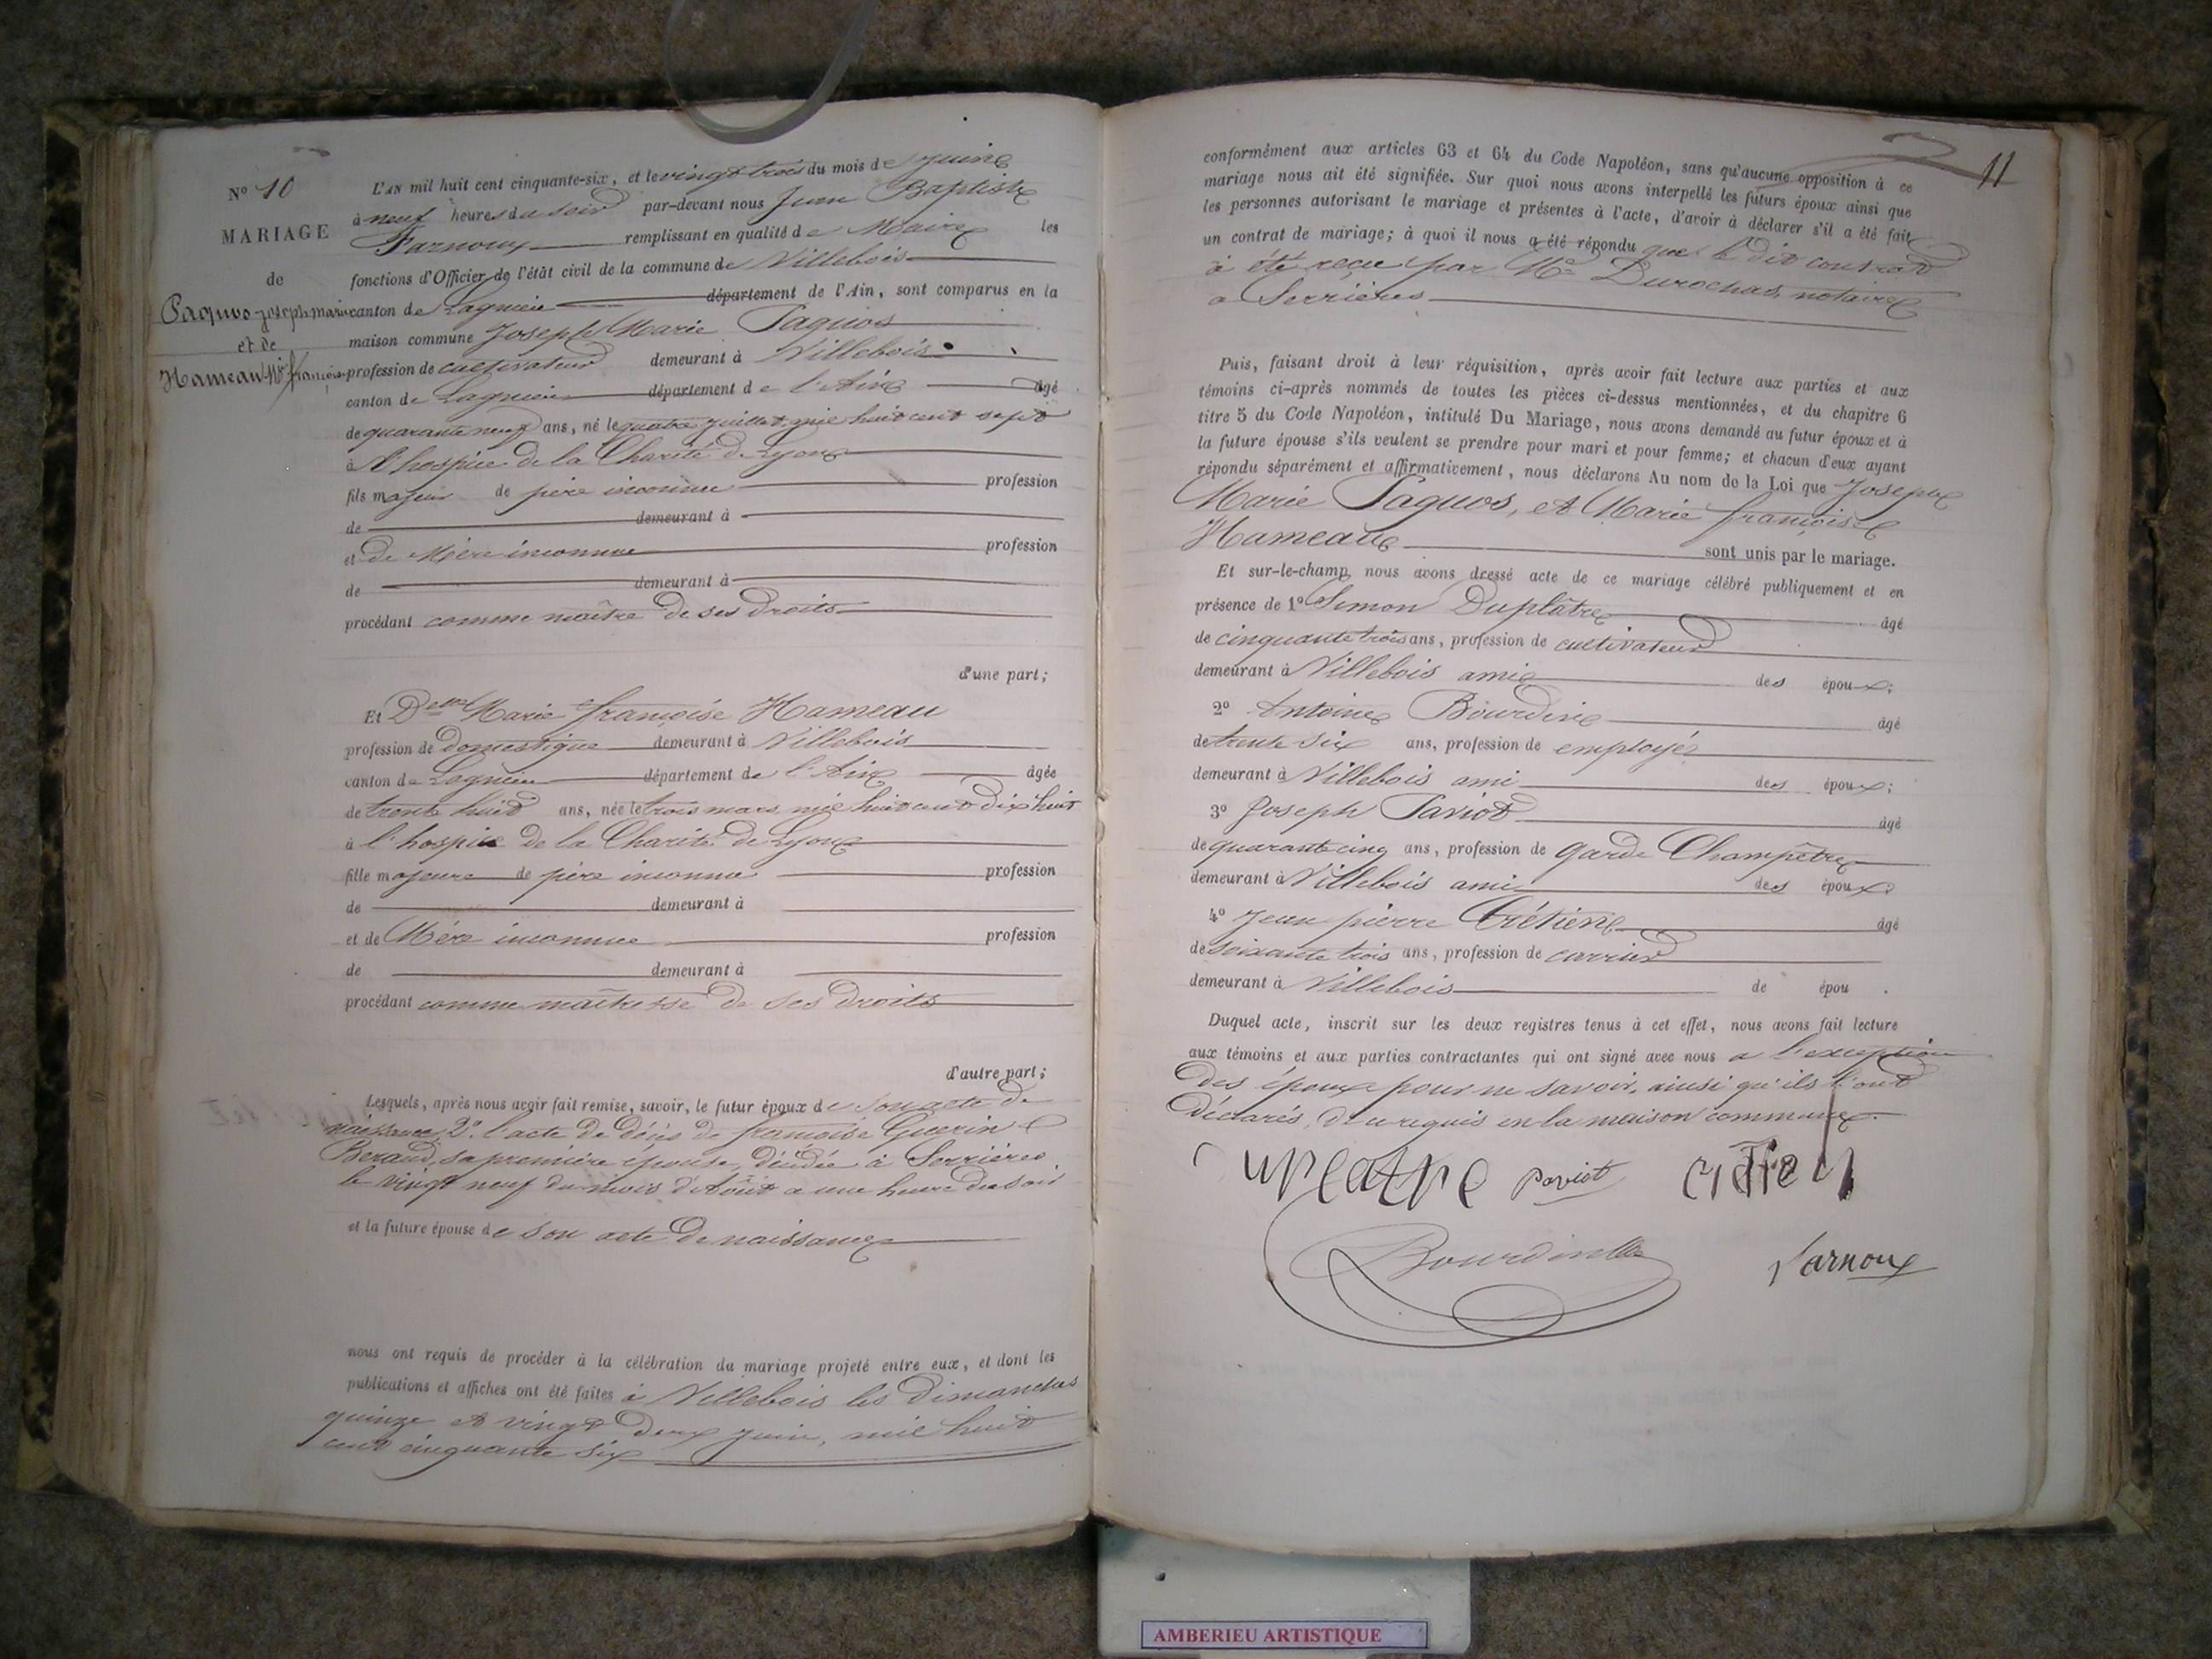 N° 10
MARIAGE
de
Paquos Joseph marie
et de
Hameau Mie françoise
L'AN mil huit cent cinquante-six, et le vingt trois du mois de juin
à neuf heures du soir par-devant nous Jean Baptiste
Farnoux remplissant en qualité de Maire les
fonctions d'Officier de l'état civil de la commune de Villebois
canton de Lagnieu département de l'Ain, sont comparus en la
maison commune Joseph Marie Paquos
profession de cultivateur demeurant à Villebois
canton de Lagnieu département de l'Ain âgé
de quarante neuf ans, né le quatre juillet mil huit cent sept
à l'hospice de la Charité de Lyon
fils majeur de père inconnu profession
de demeurant à
et de Mère inconnue profession
de demeurant à
procédant comme maître de ses droits
d'une part;
Et Delle Marie françoise Hameau
profession de domestique demeurant à Villebois
canton de Lagnieu département de l'Ain âgée
de trente huit ans, née le trois mars mil huit cent dix huit
à l'hospice de la Charité de Lyon
fille majeure de père inconnu profession
de demeurant à
et de Mère inconnue profession
de demeurant à
procédant comme maîtresse de ses droits
d'autre part;
Lesquels, après nous avoir fait remise, savoir, le futur époux de son acte de
naissance, 2° l'acte de décès de françoise Guerin
Beraud, sa première épouse, décédée à Serrières
le vingt neuf du mois d'Août a une heure du soir
et la future épouse de son acte de naissance
nous ont requis de procéder à la célébration du mariage projeté entre eux, et dont les
publications et affiches ont été faites à Villebois les dimanches
quinze et vingt deux juin, mil huit
cent cinquante six
11
conformément aux articles 63 et 64 du Code Napoléon, sans qu'aucune opposition à ce
mariage nous ait été signifiée. Sur quoi nous avons interpellé les futurs époux ainsi que
les personnes autorisant le mariage et présentes à l'acte, d'avoir à déclarer s'il a été fait
un contrat de mariage; à quoi il nous a été répondu que le dit contrat
à été reçu par Me Durochas, notaire
a Serrières
Puis, faisant droit à leur réquisition, après avoir fait lecture aux parties et aux
témoins ci-après nommés de toutes les pièces ci-dessus mentionnées, et du chapitre 6
titre 5 du Code Napoléon, intitulé Du Mariage, nous avons demandé au futur époux et à
la future épouse s'ils veulent se prendre pour mari et pour femme; et chacun d'eux ayant
répondu séparément et affirmativement, nous déclarons Au nom de la Loi que Joseph
Marie Paquos, et Marie françoise
Hameau sont unis par le mariage.
Et sur-le-champ nous avons dressé acte de ce mariage célébré publiquement et en
présence de 1° Simon Duplâtre âgé
de cinquante trois ans, profession de cultivateur
demeurant à Villebois ami des époux;
2° Antoine Bourdin âgé
de trente six ans, profession de employé
demeurant à Villebois ami des époux;
3° Joseph Paviot âgé
de quarante cinq ans, profession de garde Champêtre
demeurant à Villebois ami des époux;
4° Jean pierre Crétien âgé
de soixante trois ans, profession de carrier
demeurant à Villebois de épou .
Duquel acte, inscrit sur les deux registres tenus à cet effet, nous avons fait lecture
aux témoins et aux parties contractantes qui ont signé avec nous a l'exception
des époux pour ne savoir, ainsi qu'ils l'ont
déclarés, de ce requis en la maison commune.
Paviot
Bourdin
Farnoux
AMBERIEU ARTISTIQUE